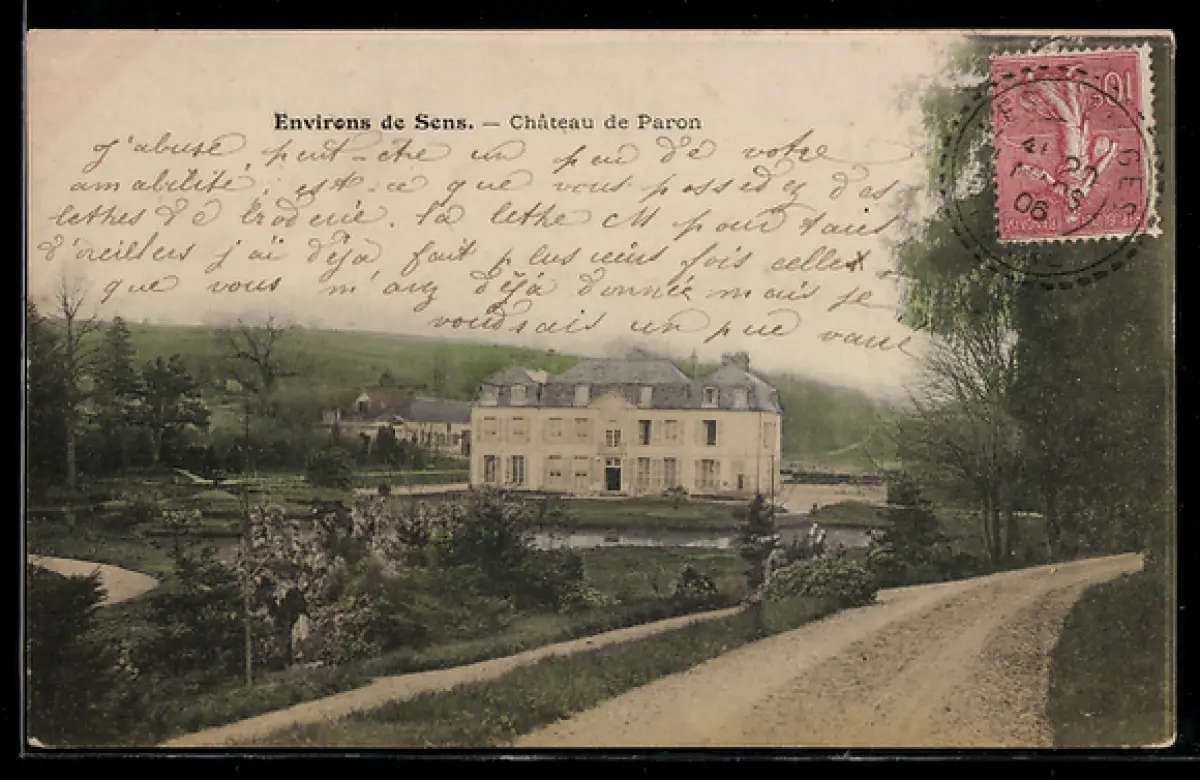 Environs de Sens. — Château de Paron
J'abuse peut-être un peu de votre
amabilité; est-ce que vous possedez des
lethes de broderie. la lethe M pour taies
d'oreillers j'ai déja fait plusieurs fois celles
que vous m'avez déjà donnée mais je
voudrais un peu varié
10
GES
20
MARS
06